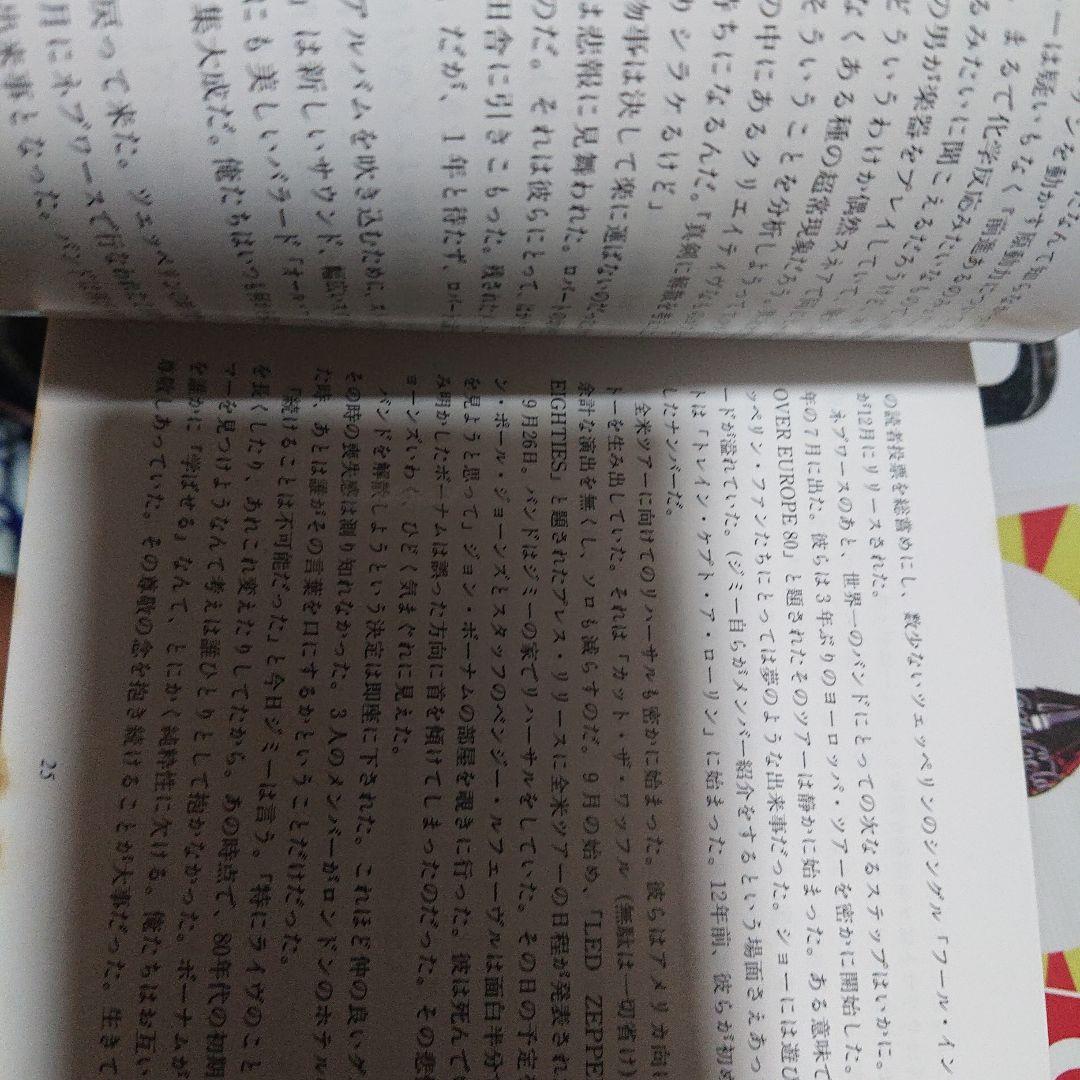 まるで化学反応みたいなもので
るみたいに聞こえるだろうけど
の男が楽器をプレイしていて、
どういうわけか偶然スネアで
なくある種の超常現象だろう。
そういうことを分析しようって
の中にあるクリエイティヴな
持ちになるんだ。「真剣に解散を
りシラケるけど」
物事は決して楽に運ばないのだ
は悲報に見舞われた。ロバートの
のだ。それは彼らにとって、
田舎に引きこもった。残された
だが、1年と待たず、ロバー
アルバムを吹き込むために、
」は新しいサウンド、幅広い
にも美しいバラード「オール・
集大成だ。俺たちはいつも
戻って来た。ツェッペリンの
月にネブワースで行なわれた
出来事となった。バンドは
の読者投票を総嘗めにし、数少ないツェッペリンのシングル「フール・イン
が12月にリリースされた。
ネブワースのあと、世界一のバンドにとっての次なるステップはいかに。
年の7月に出た。彼らは3年ぶりのヨーロッパ・ツアーを密かに開始した。
OVER EUROPE 80」と題されたそのツアーは静かに始まった。ある意味で
ッペリン・ファンたちにとっては夢のような出来事だった。ショーには遊び
ードが溢れていた。(ジミー自らがメンバー紹介をするという場面さえあっ
トは「トレイン・ケプト・ア・ローリン」に始まった。12年前、彼らが初め
したナンバーだ。
全米ツアーに向けてのリハーサルも密かに始まった。彼らはアメリカ向け
トーを生み出していた。それは「カット・ザ・ワッフル(無駄は一切省け)
余計な演出を無くし、ソロも減らすのだ。9月の始め、「LED ZEPPE
EIGHTIES」と題されたプレス・リリースに全米ツアーの日程が発表され
9月26日。バンドはジミーの家でリハーサルをしていた。その日の予定を
ン・ポール・ジョーンズとスタッフのベンジー・ルフェーヴルは面白半分で
を見ようと思って」ジョン・ボーナムの部屋を覗きに行った。彼は死んでい
み明かしたボーナムは誤った方向に首を傾けてしまったのだった。その悲
ョーンズいわく、ひどく気まぐれに見えた。
バンドを解散しようという決定は即座に下された。これほど仲の良いグ
その時の喪失感は測り知れなかった。3人のメンバーがロンドンのホテル
た時、あとは誰がその言葉を口にするかということだけだった。
「続けることは不可能だった」と今日ジミーは言う。「特にライヴのこと
を長くしたり、あれこれ変えたりしてたから。あの時点で、80年代の初期
マーを見つけようなんて考えは誰ひとりとして抱かなかった。ボーナムが
を誰かに『学ばせる』なんて、とにかく純粋性に欠ける。俺たちはお互い
尊敬しあっていた。その尊敬の念を抱き続けることが大事だった。生きて
25